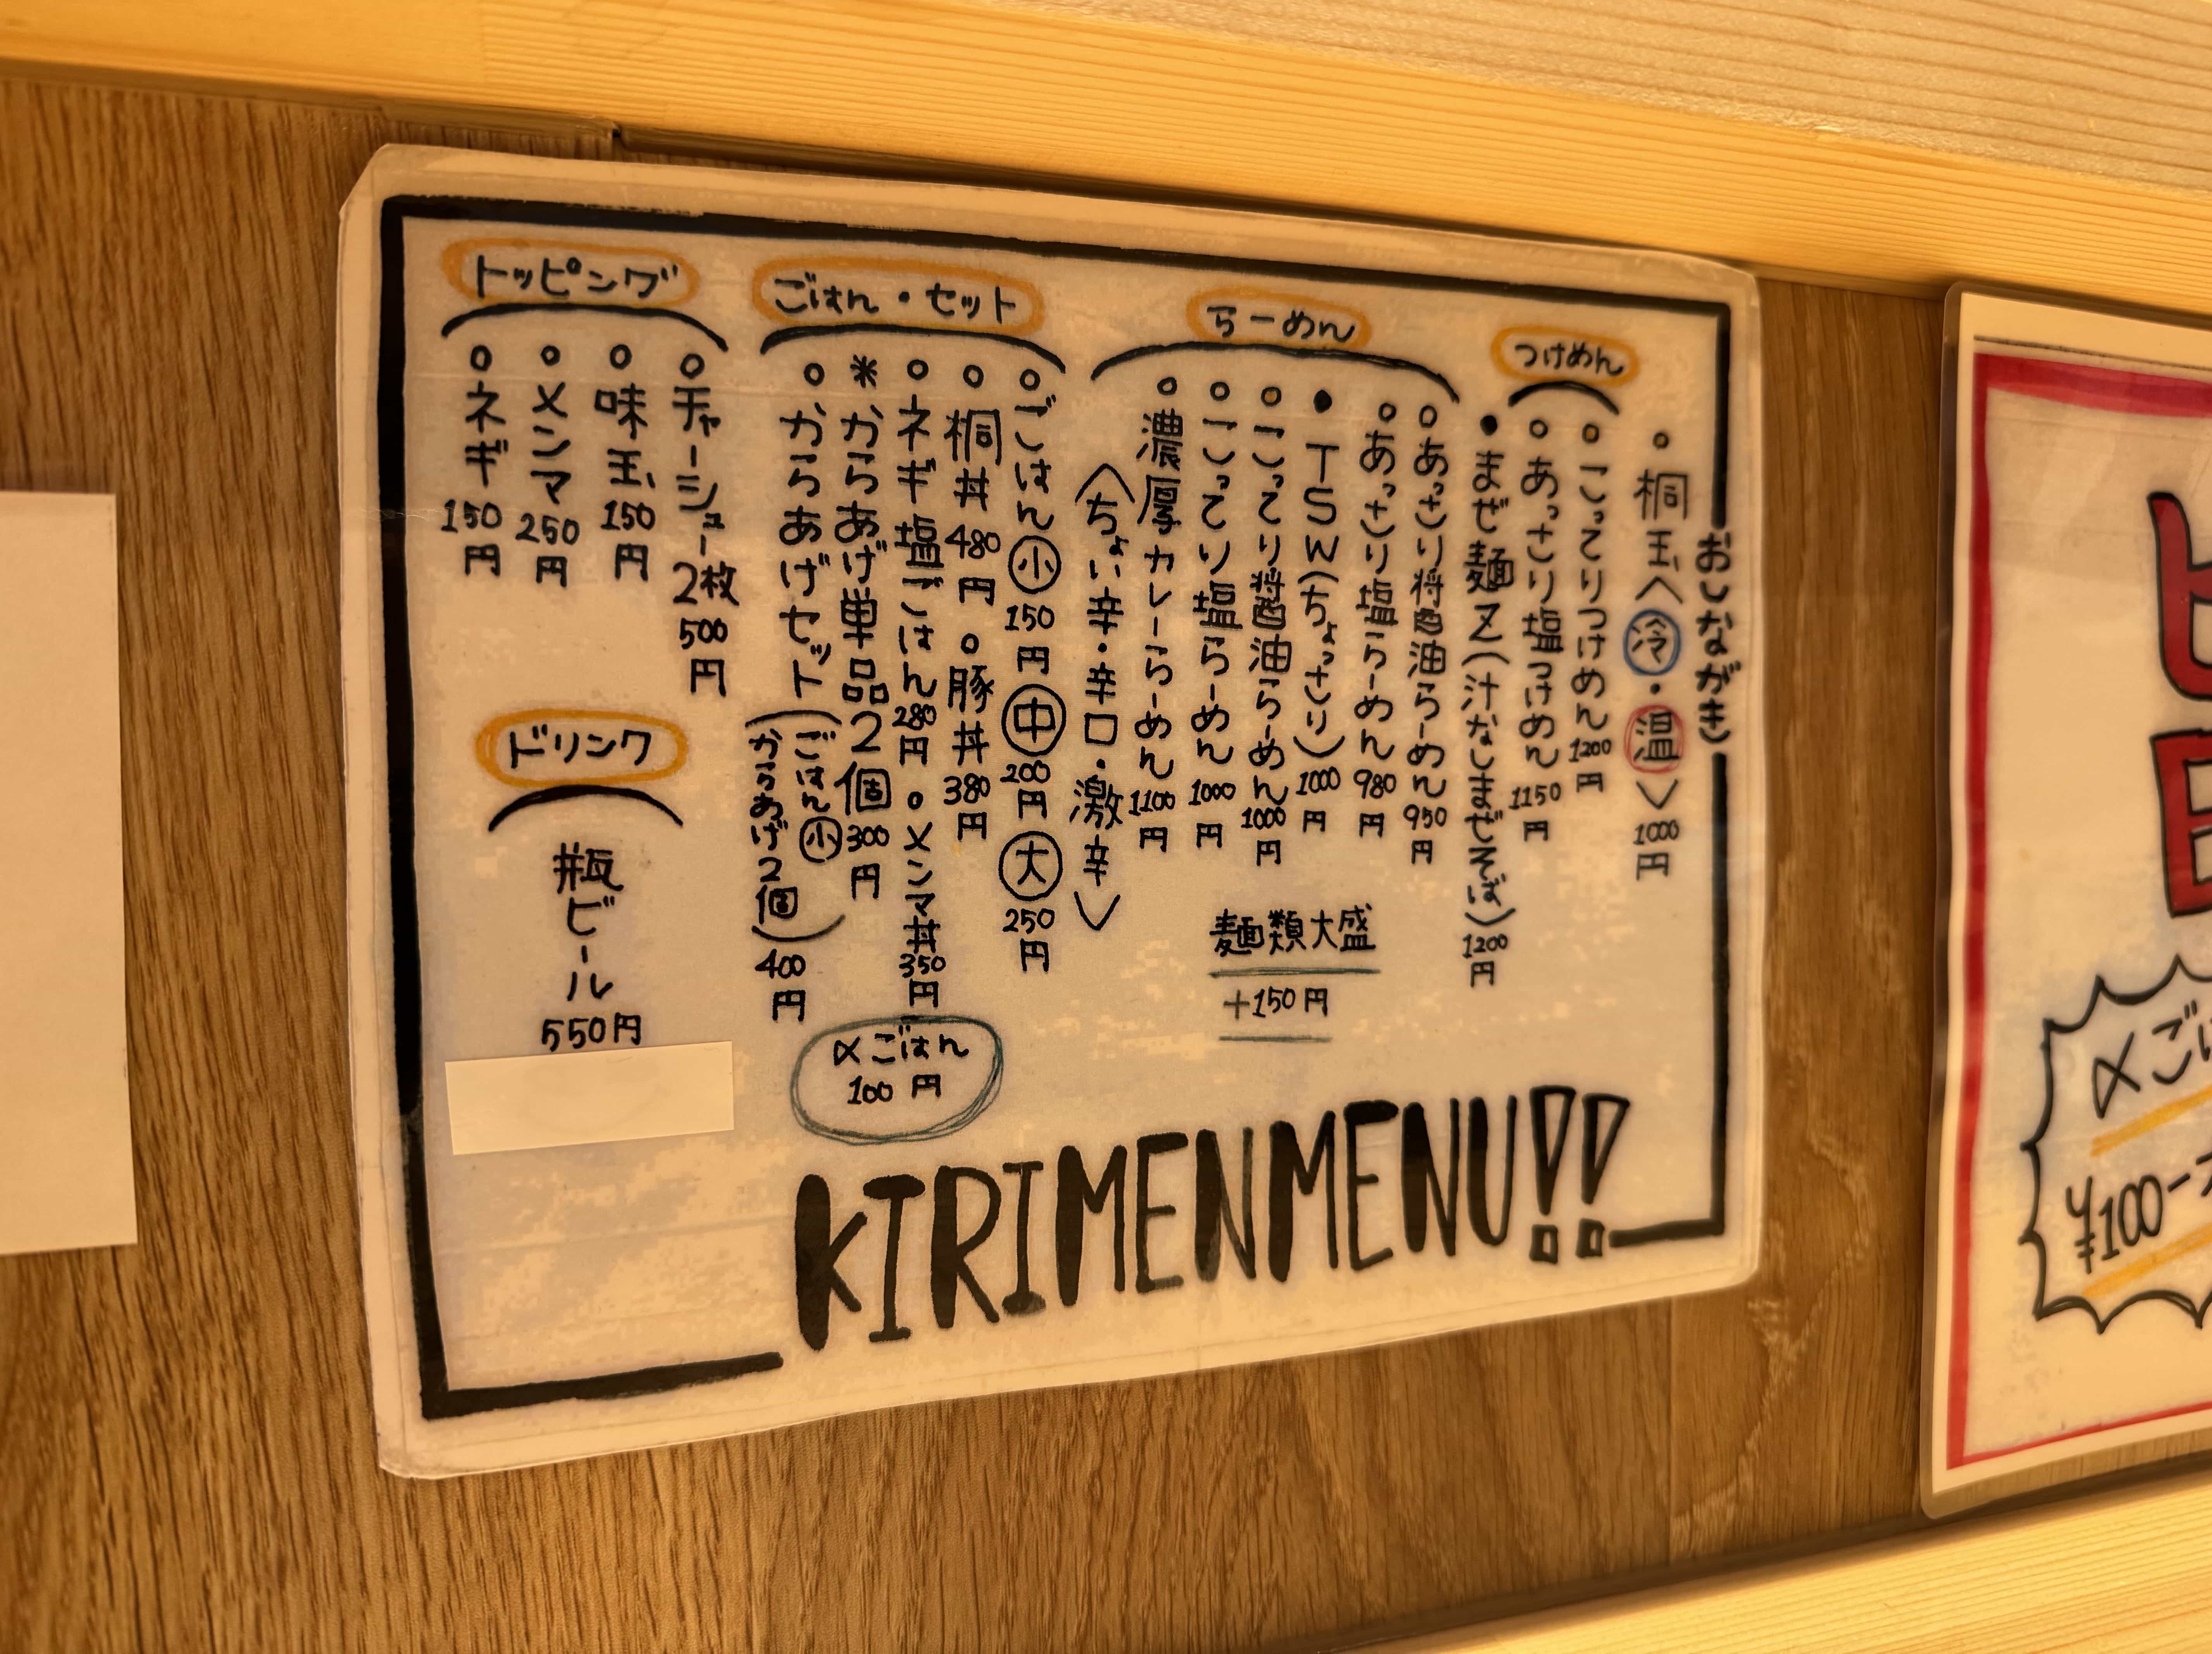 おしながき
桐玉〈冷・温〉1000円
つけめん
こってりつけめん1200円
あっさり塩つけめん1150円
まぜ麺Z(汁なしまぜそば)1200円
らーめん
あっさり醤油らーめん950円
あっさり塩らーめん980円
TSW(ちょっさり)1000円
こってり醤油らーめん1000円
こってり塩らーめん1000円
濃厚カレーらーめん1100円
〈ちょい辛・辛口・激辛〉
麺類大盛
+150円
ごはん・セット
ごはん小150円中200円大250円
桐丼480円。豚丼380円
ネギ塩ごはん280円。メンマ丼350円
*からあげ単品2個300円
からあげセット(ごはん小
からあげ2個)400円
〆ごはん
100円
トッピング
チャーシュー2枚500円
味玉150円
メンマ250円
ネギ150円
ドリンク
瓶ビール
550円
KIRIMENMENU!!
〆ごは
¥100-